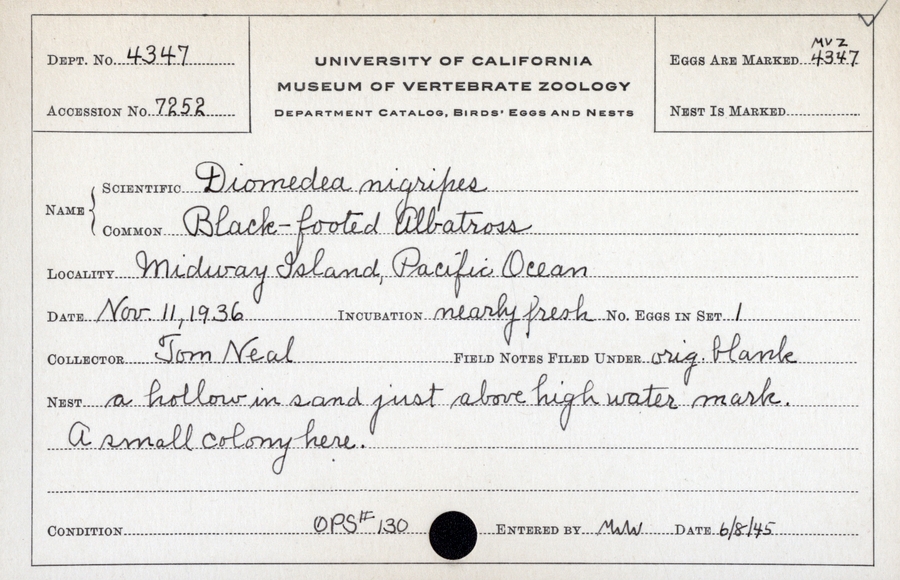 DEPT. No. 4347
ACCESSION No. 7252
UNIVERSITY OF CALIFORNIA
MUSEUM OF VERTEBRATE ZOOLOGY
DEPARTMENT CATALOG, BIRDS' EGGS AND NESTS
MVZ
EGGS ARE MARKED 4347
NEST IS MARKED
NAME
SCIENTIFIC Diomedea nigripes
COMMON Black-footed Albatross
LOCALITY Midway Island, Pacific Ocean
DATE Nov. 11, 1936 INCUBATION nearly fresh No. EGGS IN SET 1
COLLECTOR Tom Neal FIELD NOTES FILED UNDER orig. blank
NEST a hollow in sand just above high water mark.
A small colony here.
CONDITION OPS# 130 ENTERED BY MW DATE 6/8/45